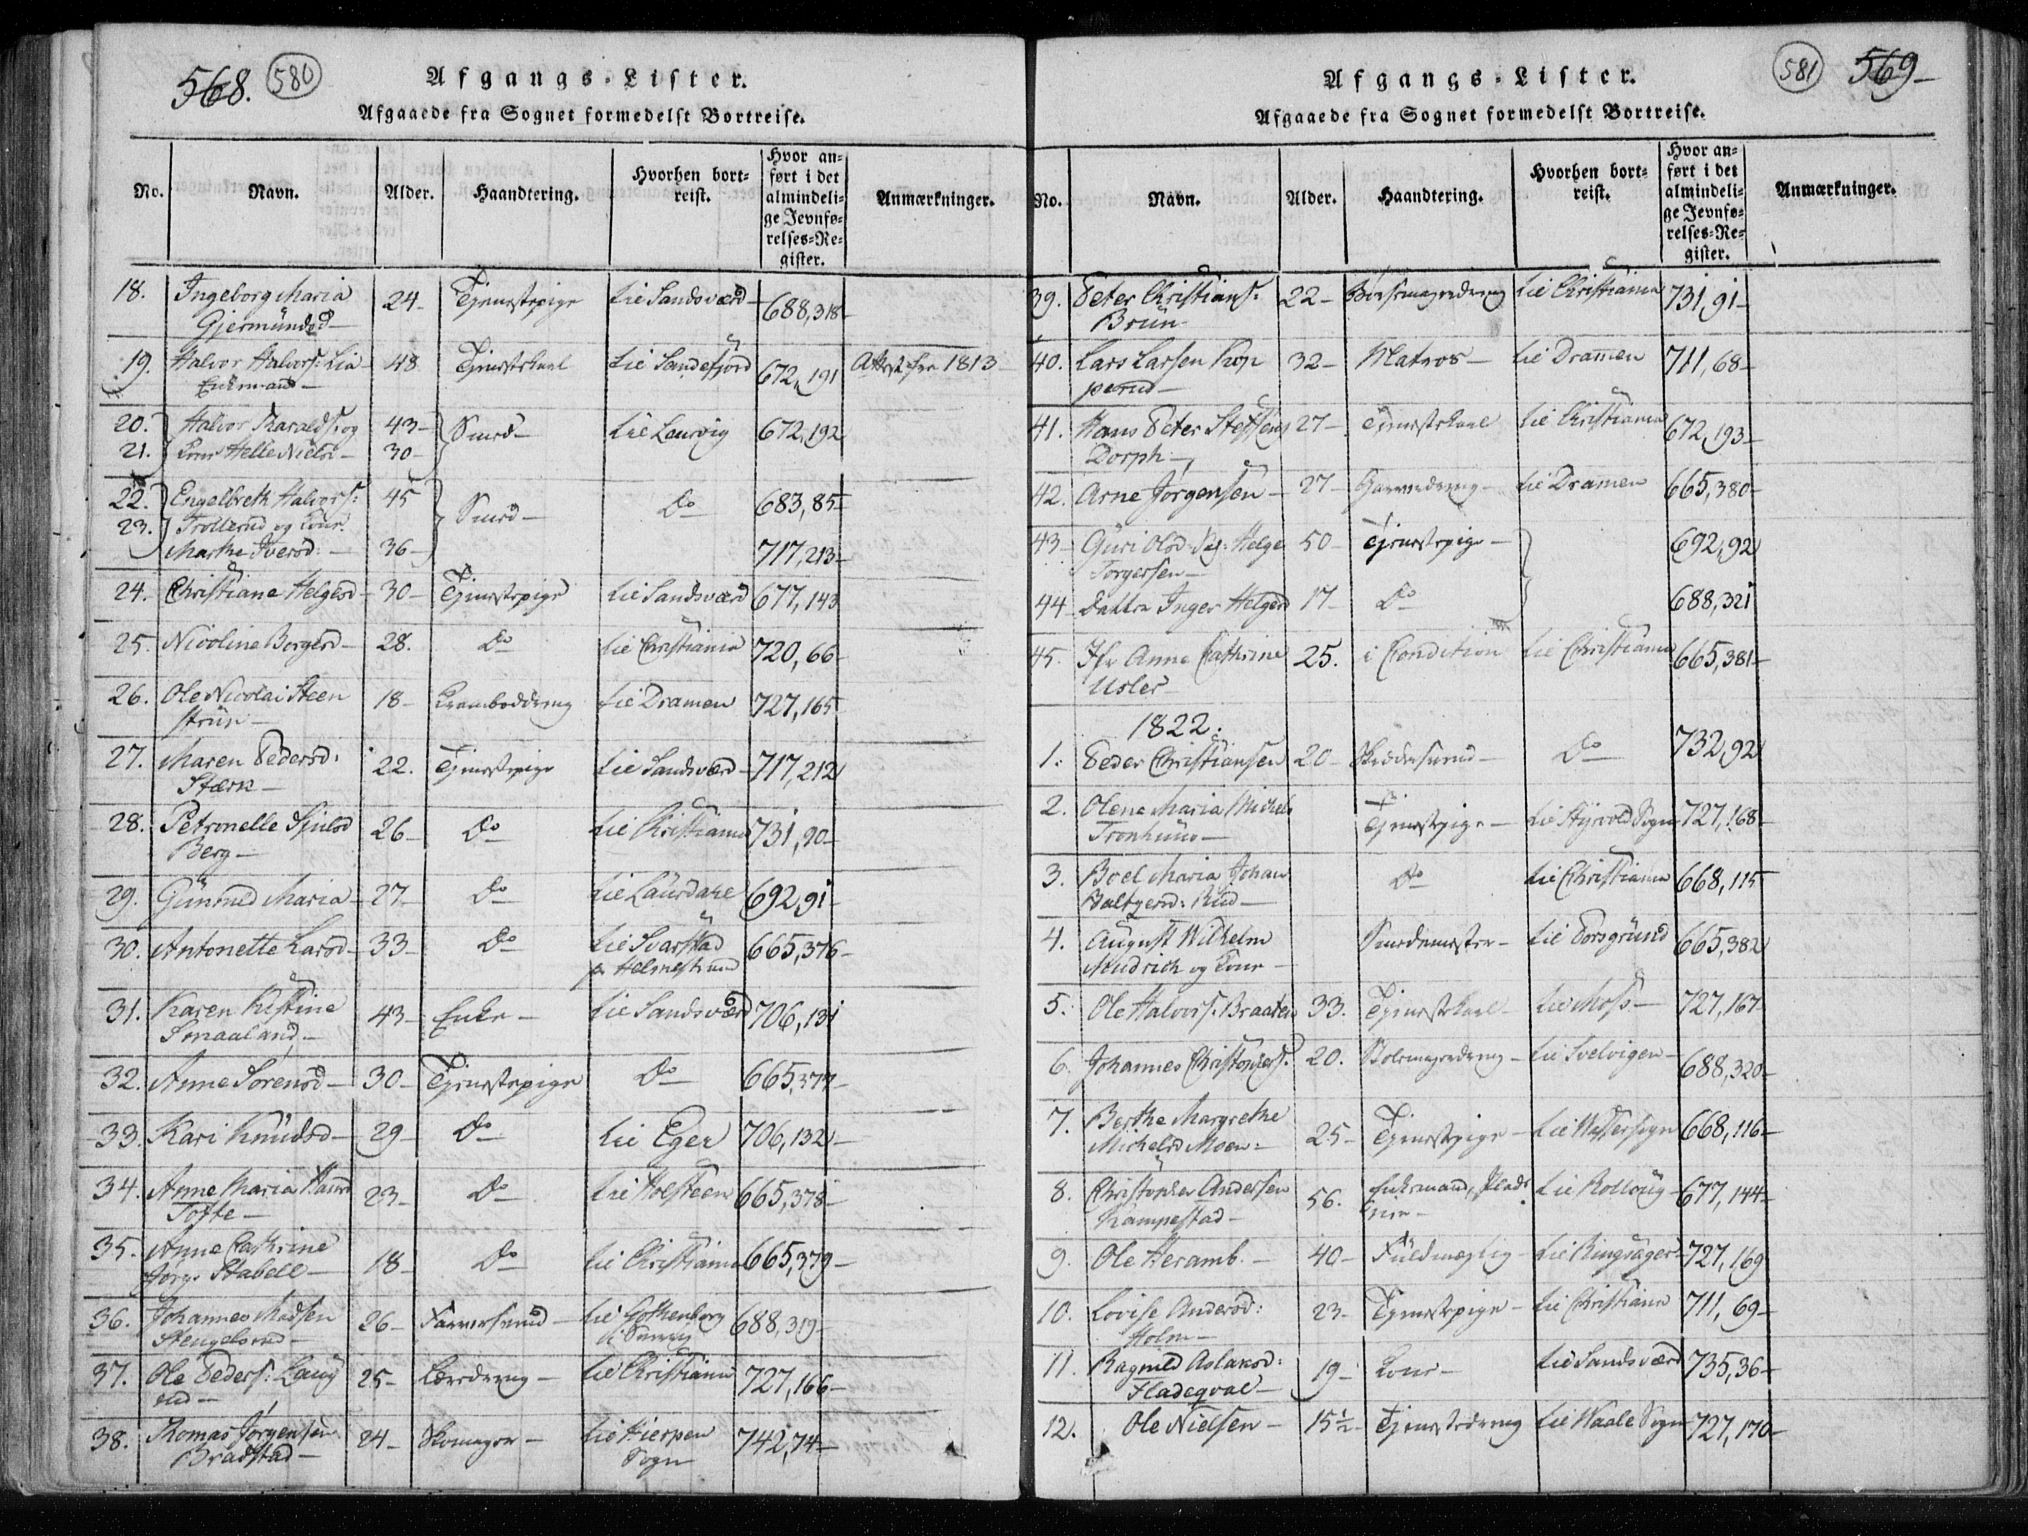 568. 580
Afgangs-Lister.
Afgaaede fra Sognet formedelst Bortreise.
No. Navn. Alder. Haandtering. Hvorhen bortreist. Hvor anført i det almindelige Jevnførelses-Register. Anmærkninger.
18. Ingeborg Maria 24- Tjenestepige til Sandsværd- 688,318-
Gjermündsd-
19. Halvor Halvors: Lia 48 Tjenestekarl til Sandefjord 672,191 Attest fra 1813
Enkemand-
20. Halvor HaraldS: og 43- Smed- til Laurvig 672,192
21. Kone Helle Nielsd- 30-
22. Engelbreth Halvors: 45 Smed- Do 683,85-
23. Trollerud og Kone
Marthe Iversd:- 36- 717,213-
24. Christiane Helgesd- 30- Tjenestepige til Sandsværd 677,143
25. Nicoline Borgersd- 28. Do til Christiania 720,66-
26. Ole Nicolai Steen 18- Kramboddreng til Dramen 727,165
strün-
27. Maren Pedersd: 22. Tjenestepige til Sandsværd- 717,212
Stærk-
28. Petronelle 26- Do til Christiania 731,90-
Berg-
29. Gunnild Maria- 27- Do til Laurdahl 692,91
30. Antonette Larsd- 33- Do til Svarstad 665,376-
31. Karen Kistine 43- Enke- til Sandsværd 706,131
Sonaaland-
32. Anne Sørensd- 30- Tjenestepige Do 665,377-
33. Kari Knüdsd- 29- Do til Eger 706,132-
34. Anne Maria Hansd 23- Do til Holsteen 665,378-
Tofte-
35. Anne Cathrine 18- Do til Christiania 665,379-
Jørg: Stabell-
36. Johannes Madsen 26- Farversvend- til Gothenborg 688,319-
Stengelsrud- i Sverrig
37. Ole Peders: Laug 25- Læredreng- til Christiania 727,166-
rud-
38. Thomas Jørgensen 24- Skomager- til Hierpen 742,74-
Bradstad- Sogn
581 569-
Afgangs-Lister.
Afgaaede fra Sognet formedelst Bortreise.
No. Navn. Alder. Haandtering. Hvorhen bortreist. Hvor anført i det almindelige Jevnførelses-Register. Anmærkninger.
39. Peter Christians: 22- Bøssemagerdreng til Christiania 731,91-
Brün-
40. Lars Larsen Kop 32- Matros- til Dramen 711,68-
perud-
41. Hans Peter Steffens 27- Tjenestekarl til Christiania 672,193-
Dorph-
42. Arne Jørgensen- 27- til Dramen 665,380-
43- Guri Olsd: Helge 50- Tjenestepige- 692,92
Torgersen-
44- Datter Inger Helgesd 17- Do 688,321
45. Jfr Anne Cathrine 25. i Condition til Christiania 665,381-
Usler-
1822:
1. Peder Christiansen 20- Do 732,92
2. Olene Maria Michels Tjenestepige- til Styrvold Sogn 727,168-
Tronhuus-
3. Boel Maria Johan Do til Christiania 668,115
Rud-
4. August Wilhelm Smedemester- til Porsgründ 665,382
og Kone-
5. Ole Halvors: Braaten 33. Tjenestekarl- til Moss- 727,167-
6. Johannes Christophers: 20. Stolemagerdreng- til Svelvigen- 688,320-
7. Berthe Margrethe 25- Tjenestepige- til 668,116-
Michelsd Moen-
8. Christopher Andersen 56. Enkemand, til Rolloug- 677,144-
Kampestad-
9. Ole Heramb.- 40- Füldmægtig- til Ringsager 727,169
10. Lovise Andersd: 23- Tjenestepige- til Christiania 711,69-
Holm-
11. Ragnild Aslaksd: 19- Kone- til Sandsværd 735,36-
Fladeqval-
12. Ole Nielsen- 15½- Tjenestedreng til Waale Sogn 727,170-